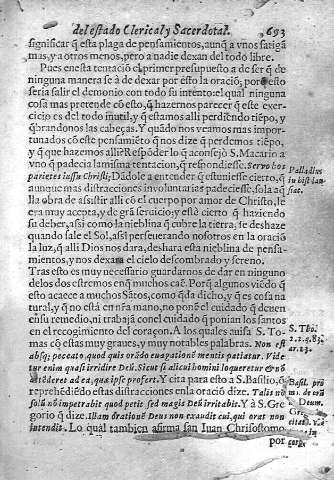 del estado Clerical y Sacerdotal. 693
significar q̃ esta plaga de pensamientos, aunq̃ a vnos fatigã
mas, y a otros menos, pero a nadie dexan del todo libre.
Pues en esta tentaciõ el primer presupuesto a de ser q̃ de
ninguna manera se â de dexar por esto la oraciõ; porq̃ esto
seria salir el demonio con todo su intento: el qual ninguna
cosa mas pretende cõ esto, q̃ hazernos parecer q̃ este exer-
cicio es del todo inutil, y q̃ estamos alli perdiẽdo tiẽpo, y
q̃brandonos las cabeças. Y quãdo nos veamos mas
importunados cõ este pensamiẽto q̃ nos dize q̃ perdemos tiẽpo,
y q̃ que hazemos alliẽ respõder lo q̃ aconsejò S. Macario a
vno q̃ padecia la misma tentacion, q̃ respondiesse. Servo hos
parietes iussu Christi; Dãdole a entender q̃ estuuiesse cierto, q̃
aunque mas distracciones inuoluntarias padeciesse, sola aq̃lla
obra de asistir alli cõ el cuerpo por amor de Christo, le
era muy acepta, y de grã seruicio: y està cierto q̃ haziendo
su deber, assi como la niebla q̃ cubre la tierra, se deshaze
quando sale el Sol, assi perseuerando nosotros en la oraciõ
la luz, q̃ alli Dios nos dara, deshara esta nieblina de pensa-
mientos, y nos dexara el cielo descombrado y sereno.
Tras esto es muy necessario guardarnos de dar en ninguno
delos dos estremos enq̃ muchos caẽ. Porq̃ algunos viẽdo q̃
esto acaece a muchos Sãtos, como q̃da dicho, y q̃ es cosa na
tural, y q̃ no està en nr̃a mano, no ponẽ el cuidado q̃ deuen
en su remedio, ni trabajã cõ el cuidado q̃ ponian los santos
en el recogimiento del coraçon. A los quales auisa S. To-
mas cõ estas muy graues, y muy notables palabras. Non est
absq; peccato, quod quis orãdo euagationẽ mentis patiatur. Vide
tur enim quasi irridere Deũ. Sicut si alicui homini loqueretur & nõ
attẽderet ad ea, quæ ipse profert. Y cita para esto a S. Basilio, q̃
reprehẽdiẽdo estas distracciones en la oraciõ dize. Talis nõ
solũ nõ impetrabit quod petit sed magis Deũ irritabit. Y à S. Gre
gorio q̃ dize. Illam orationẽ Deus non exaudit cui, qui orat non
intendit. Lo qual tambien afirma san Iuan Chrisostomo
por
Palladius
in hist. lau-
siac.
S. Tho.
2.2.q.83.
ar.13.
Basil.